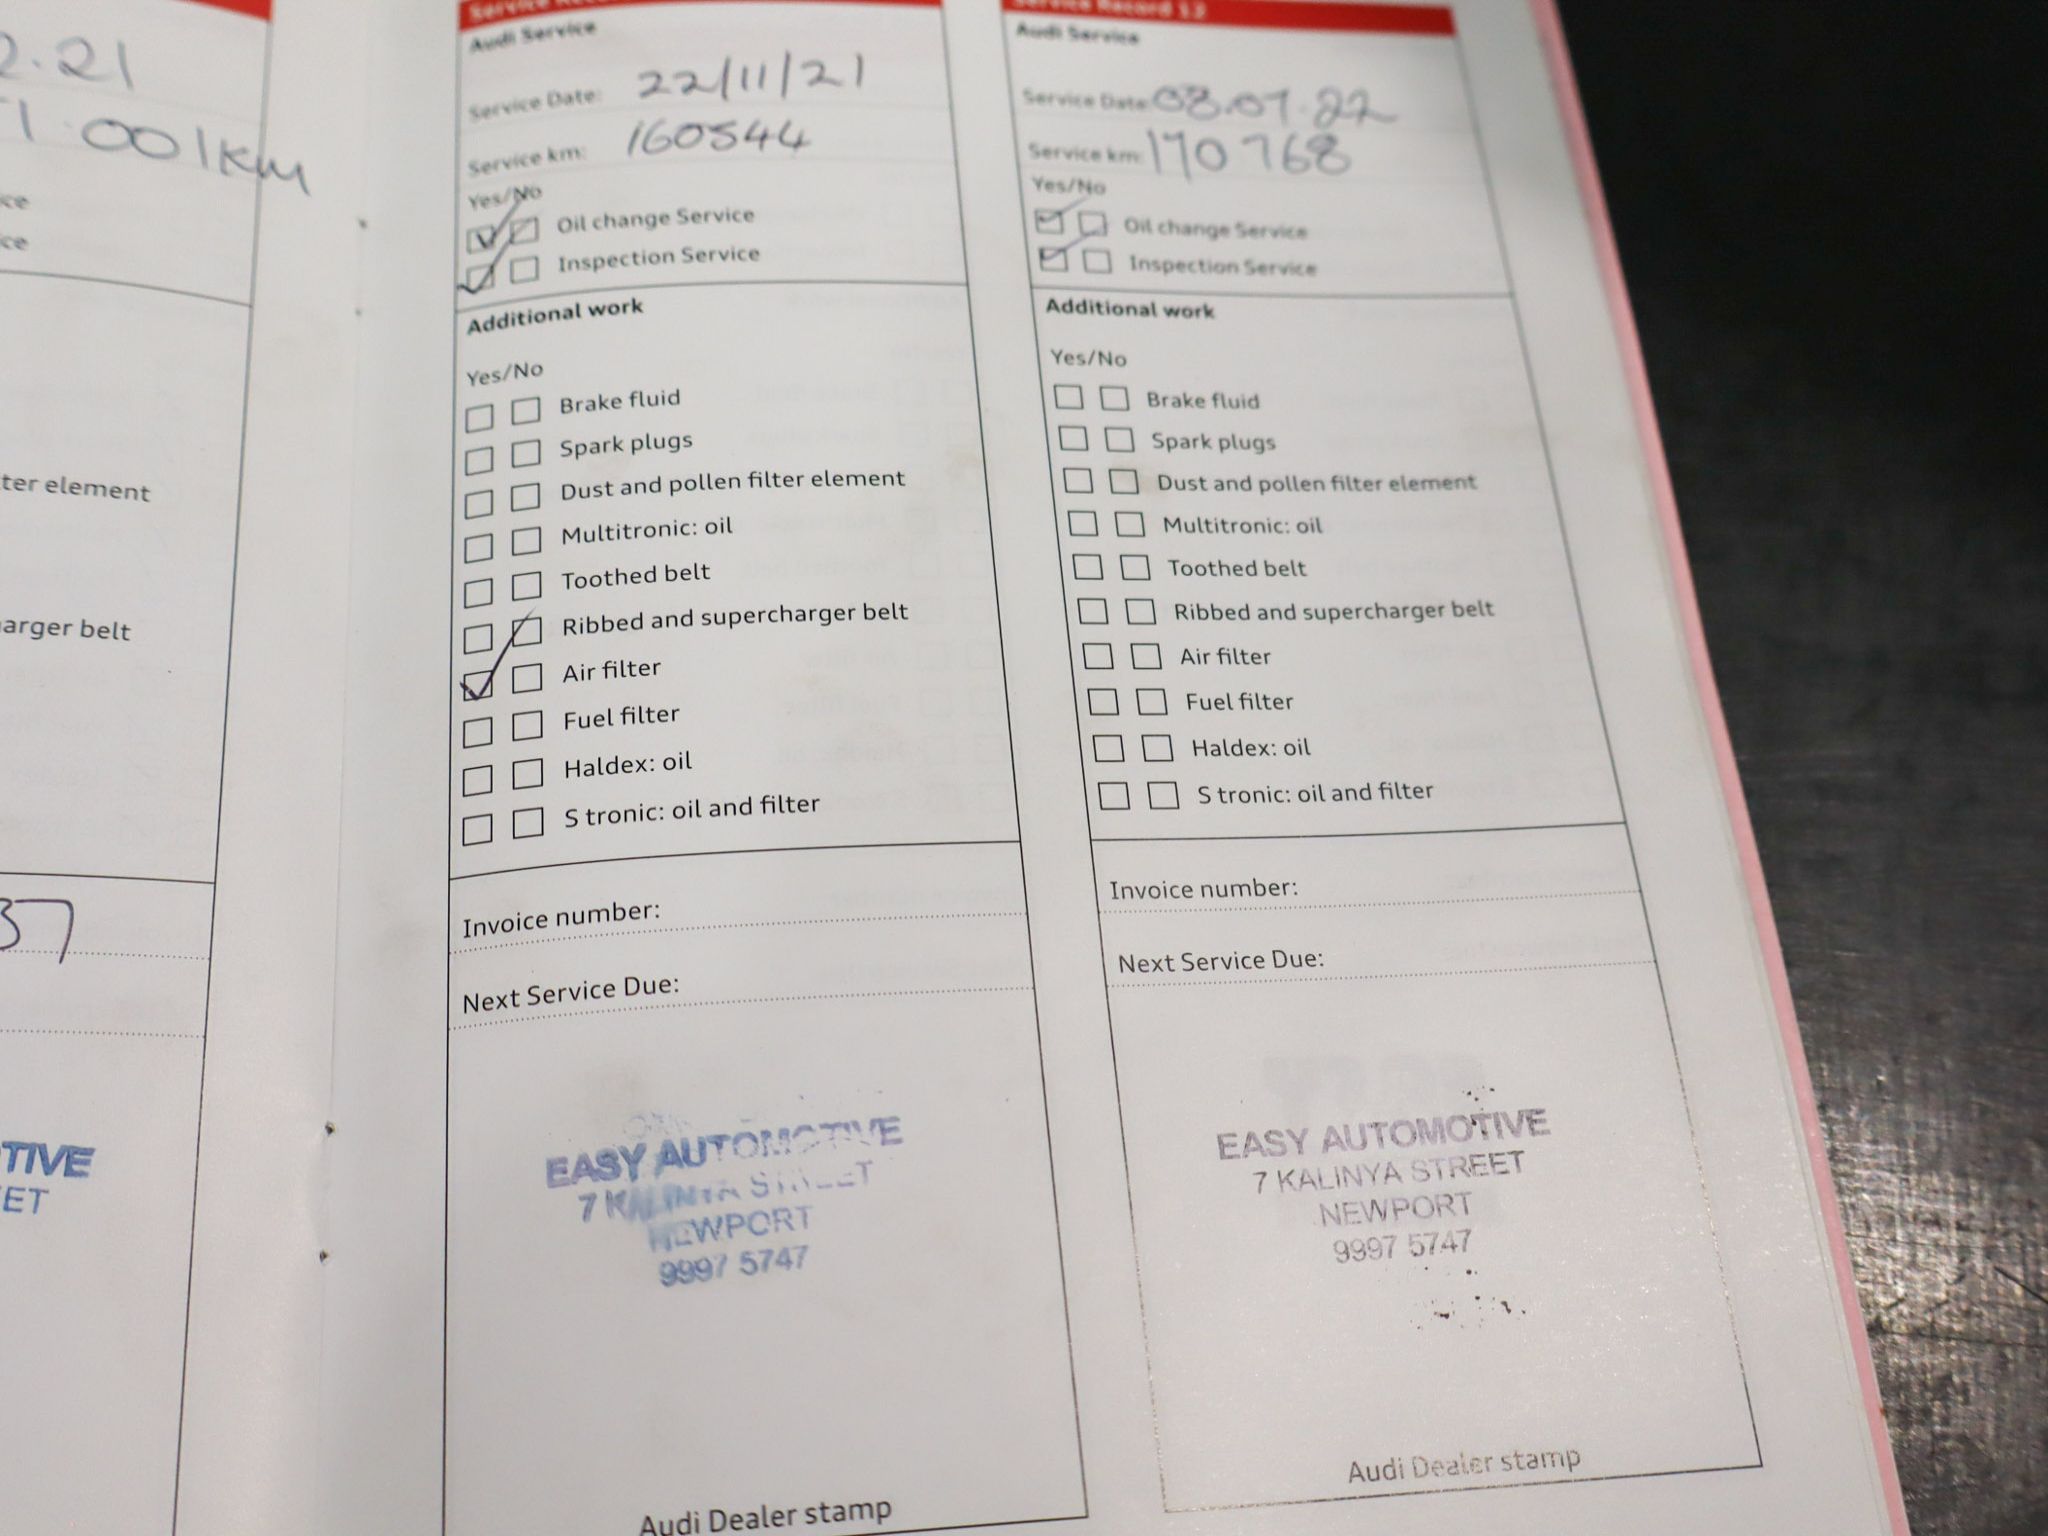 2.21
001km
ce
ce
ter element
arger belt
37
TIVE
ET
Service
Audi Service
Service Date: 22/11/21
Service km: 160544
Yes/No
Oil change Service
Inspection Service
Additional work
Yes/No
Brake fluid
Spark plugs
Dust and pollen filter element
Multitronic: oil
Toothed belt
Ribbed and supercharger belt
Air filter
Fuel filter
Haldex: oil
S tronic: oil and filter
Invoice number:
Next Service Due:
EASY AUTOMOTIVE
7 KALINYA STREET
NEWPORT
9997 5747
Audi Dealer stamp
Service Record 12
Audi Service
Service Date: 08.07.22
Service km: 170768
Yes/No
Oil change Service
Inspection Service
Additional work
Yes/No
Brake fluid
Spark plugs
Dust and pollen filter element
Multitronic: oil
Toothed belt
Ribbed and supercharger belt
Air filter
Fuel filter
Haldex: oil
S tronic: oil and filter
Invoice number:
Next Service Due:
EASY AUTOMOTIVE
7 KALINYA STREET
NEWPORT
9997 5747
Audi Dealer stamp